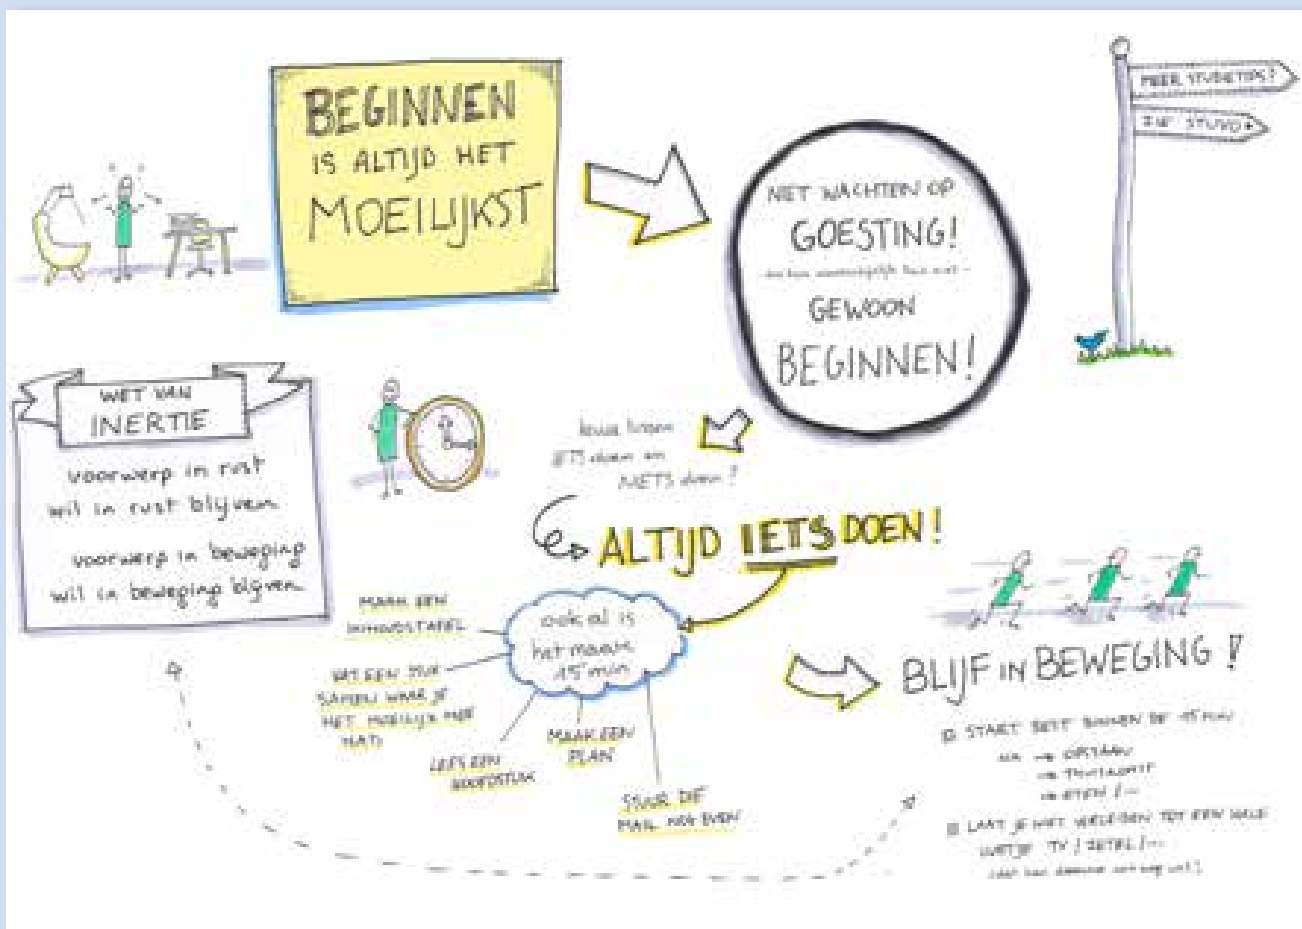 BEGINNEN
IS ALTIJD HET
MOEILIJKST
MEER STUDIETIPS?
ZIE STUVO+
NIET WACHTEN OP
GOESTING!
GEWOON
BEGINNEN!
WET VAN
INERTIE
voorwerp in rust
wil in rust blijven
voorwerp in beweging
wil in beweging blijven
keuze tussen
IETS doen en
NIETS doen?
ALTIJD IETS DOEN!
ook al is
het maar
15 min
MAAK EEN
INHOUDSTAFEL
VAT EEN STUK
SAMEN WAAR JE
HET MOEILIJK MEE
HAD
LEES EEN
HOOFDSTUK
MAAK EEN
PLAN
STUUR DIE
MAIL NOG EVEN
BLIJF IN BEWEGING!
START BEST BINNEN DE 15 MIN
NA → OPSTAAN
→ THUISKOMST
→ ETEN / ...
LAAT JE NIET VERLEIDEN TOT EEN
TV / ZETEL / ...